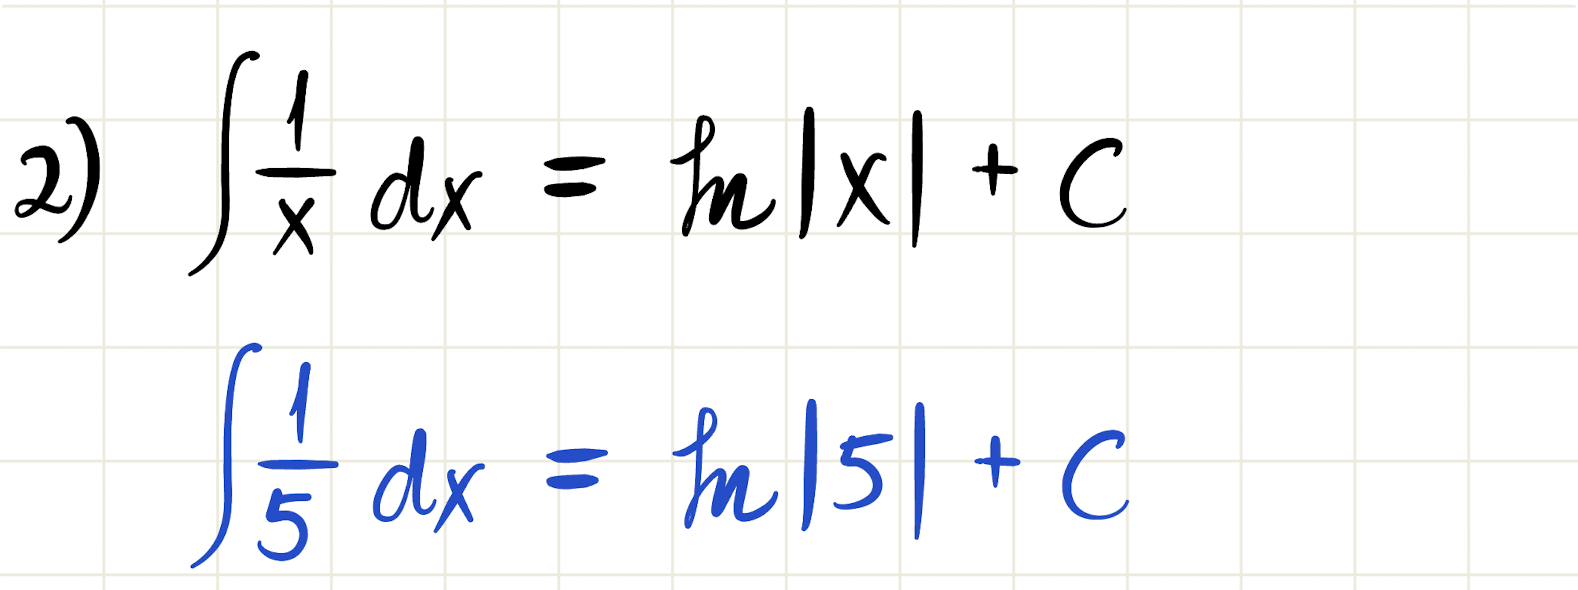 2) ∫ 1/x dx = ln|x| + C
∫ 1/5 dx = ln|5| + C